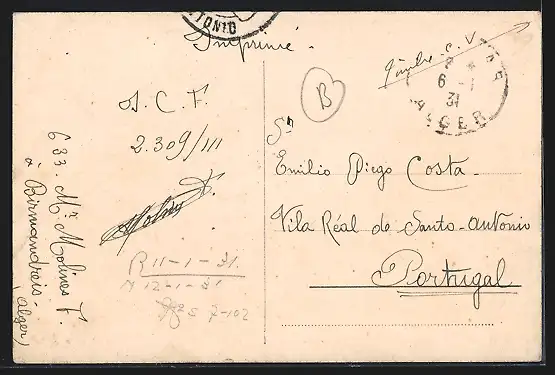 TONIO
Imprimé.
Timbre. C. V.
6 - 1
31
ALGER
B
J. C. F.
2.309/III
Sr
Emilio Diego Costa.
Vila Réal de Santo-Antonio
Portugal
633. Mr Molines F.
à Birmandreis.
(Alger)
R 11-1-31.
12-1-31
7-102